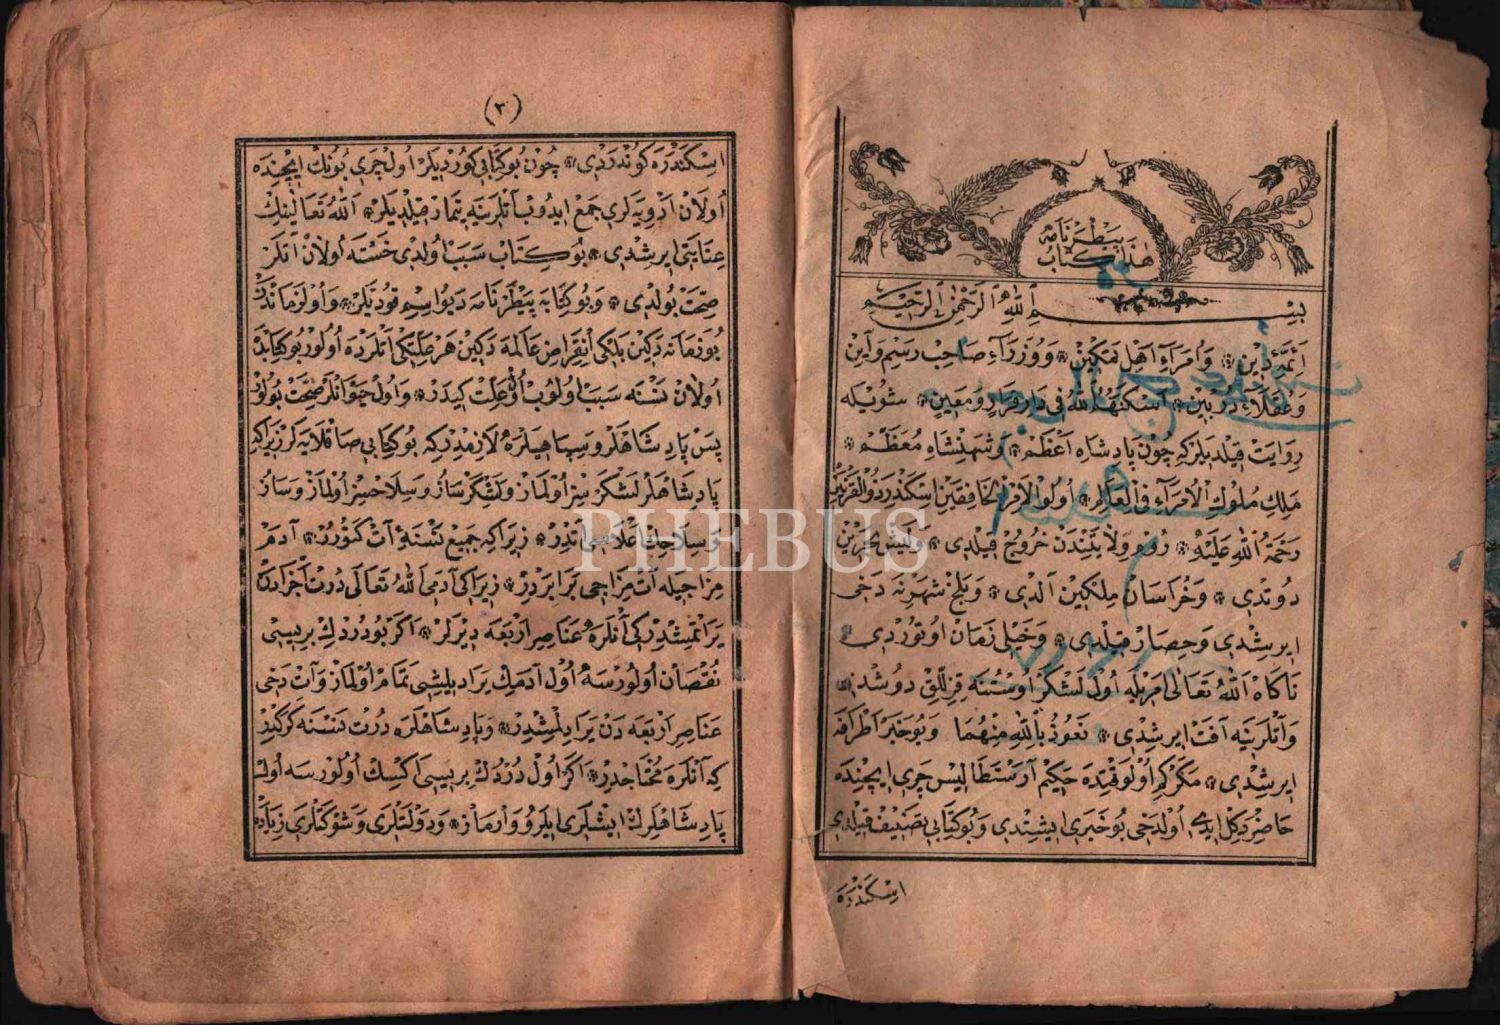 هذا كتاب
بيطرنامه
بسم الله الرحمن الرحيم
ائمۀ دين * وامراء اهل تمكين * ووزراء صاحب رسم وآيين
وعقلاء دربين * اسكنهم الله فى دار قرار ومعين * شويله
روايت قيلديلركه چون پادشاه اعظم * وشهنشاه معظم *
ملك ملوك الامراء فى العالم * اولوالامر الخافقين اسكندر ذوالقرنين
رحمة الله عليه * روم ولايتندن خروج قيلدى *
دوتدى * وخراسان ملكين الدى * وبلخ شهرنه دخى
ايرشدى وحصار قيلدى * وخيلى زمان اوتوردى *
ناكاه الله تعالى امريله اول لشكر اوستنه قزللق دوشدى
وآتلرينه آفت ايرشدى * نعوذ بالله منهما وبو خبر اطرافه
ايرشدى * مكركم اولوقتده حكيم آرسطاليس چرى ايچنده
حاضر دكل ايدى اولدخى بو خبرى ايشتدى وبوكتابى تصنيف قيلدى
اسكندره
(٣)
اسكندره كوندردى * چون بوكتابى كورديلر اول چرى بونك ايچنده
اولان ادويه لرى جمع ايدوب آتلرينه تيمار قيلديلر * الله تعالينك
عنايتى ايرشدى * بو كتاب سبب اولدى خسته اولان اتلر
صحت بولدى * وبو كتابه بيطرنامه ديو اسم قوديلر * واول زماندن
بو زمانه دكين بلكى انقراض عالمه دكين هر علتكى آتلرده اولور بوكتابده
اولان نسنه سبب اولوب اول علت كيدر * واول حيوانلر صحت بولور
پس پادشاهلر وسپاهيلره لازمدركه بوكتابى صاقلايه لر زيراكه
پادشاهلر لشكرسز اولماز ولشكر ساز وسلاحسز اولماز وساز
وسلاحك اعلاسى اتدر * زيراكه جميع نسنۀ آت كتورر * آدم
مزاجيله آت مزاجى برابردر * زيراكى آدمى الله تعالى درت اجزادن
يراتمشدركى آنلره عناصر اربعه ديرلر * اكر بو دردك بريسى
نقصان اولورسه اول آدمك براديلشى تمام اولماز وآت دخى
عناصر اربعه دن يراديلمشدر * وپادشاهلره درت نسنه كركدر
كه آنلره محتاجدر * اكر اول دردك بريسى اكسك اولورسه اول
پادشاهلرك ايشلرى ايلرو وارماز * ودولتلرى وشوكتلرى زياده
PHEBUS